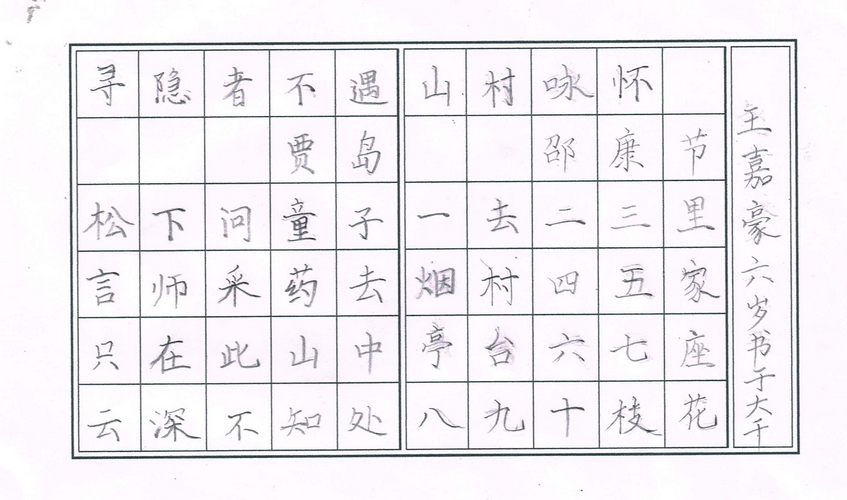 寻隐者不遇
贾岛
松下问童子
言师采药去
只在此山中
云深不知处
山村咏怀
邵康节
一去二三里
烟村四五家
亭台六七座
八九十枝花
王嘉豪六岁书于大千